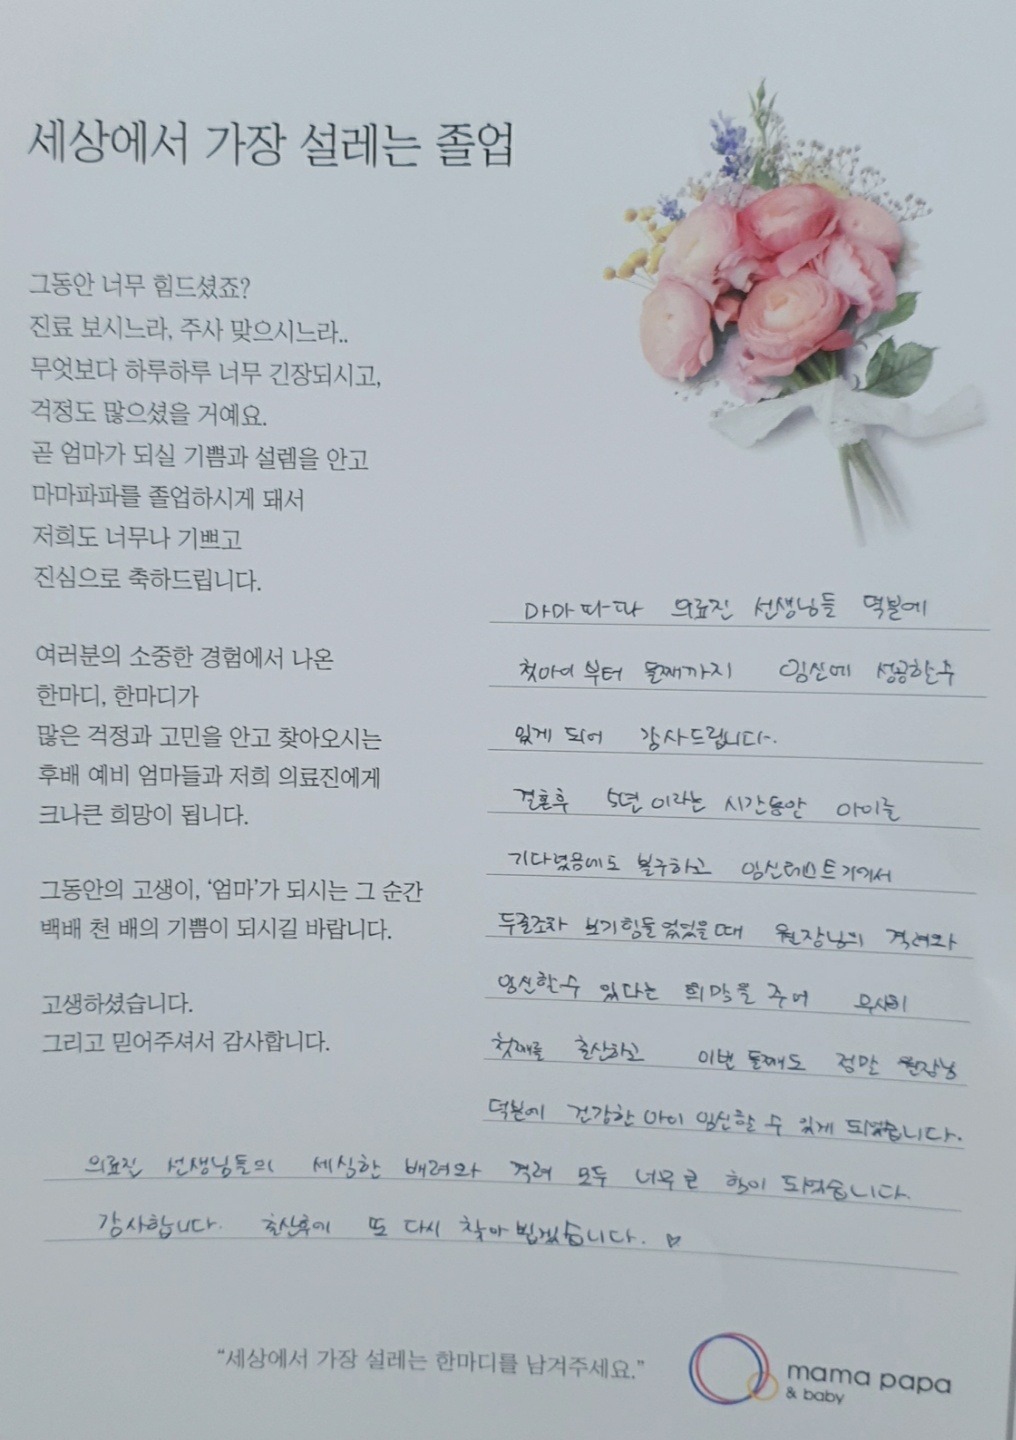 세상에서 가장 설레는 졸업
그동안 너무 힘드셨죠?
진료 보시느라, 주사 맞으시느라..
무엇보다 하루하루 너무 긴장되시고,
걱정도 많으셨을 거예요.
곧 엄마가 되실 기쁨과 설렘을 안고
마마파파를 졸업하시게 돼서
저희도 너무나 기쁘고
진심으로 축하드립니다.
여러분의 소중한 경험에서 나온
한마디, 한마디가
많은 걱정과 고민을 안고 찾아오시는
후배 예비 엄마들과 저희 의료진에게
크나큰 희망이 됩니다.
그동안의 고생이, ‘엄마’가 되시는 그 순간
백배 천 배의 기쁨이 되시길 바랍니다.
고생하셨습니다.
그리고 믿어주셔서 감사합니다.
마마파파 의료진 선생님들 덕분에
첫아이 부터 둘째까지 임신에 성공할수
있게 되어 감사드립니다.
결혼후 5년 이라는 시간동안 아이를
기다렸음에도 불구하고 임신테스트기에서
두줄조차 보기힘들었었을때 원장님의 격려와
임신할수 있다는 희망을 주어 무사히
첫째를 출산하고 이번 둘째도 정말 원장님
덕분에 건강한 아이 임신할 수 있게 되었습니다.
의료진 선생님들의 세심한 배려와 격려 모두 너무 큰 힘이 되었습니다.
감사합니다. 출산후에 또 다시 찾아 뵙겠습니다. ♡
“세상에서 가장 설레는 한마디를 남겨주세요.”
mama papa
& baby